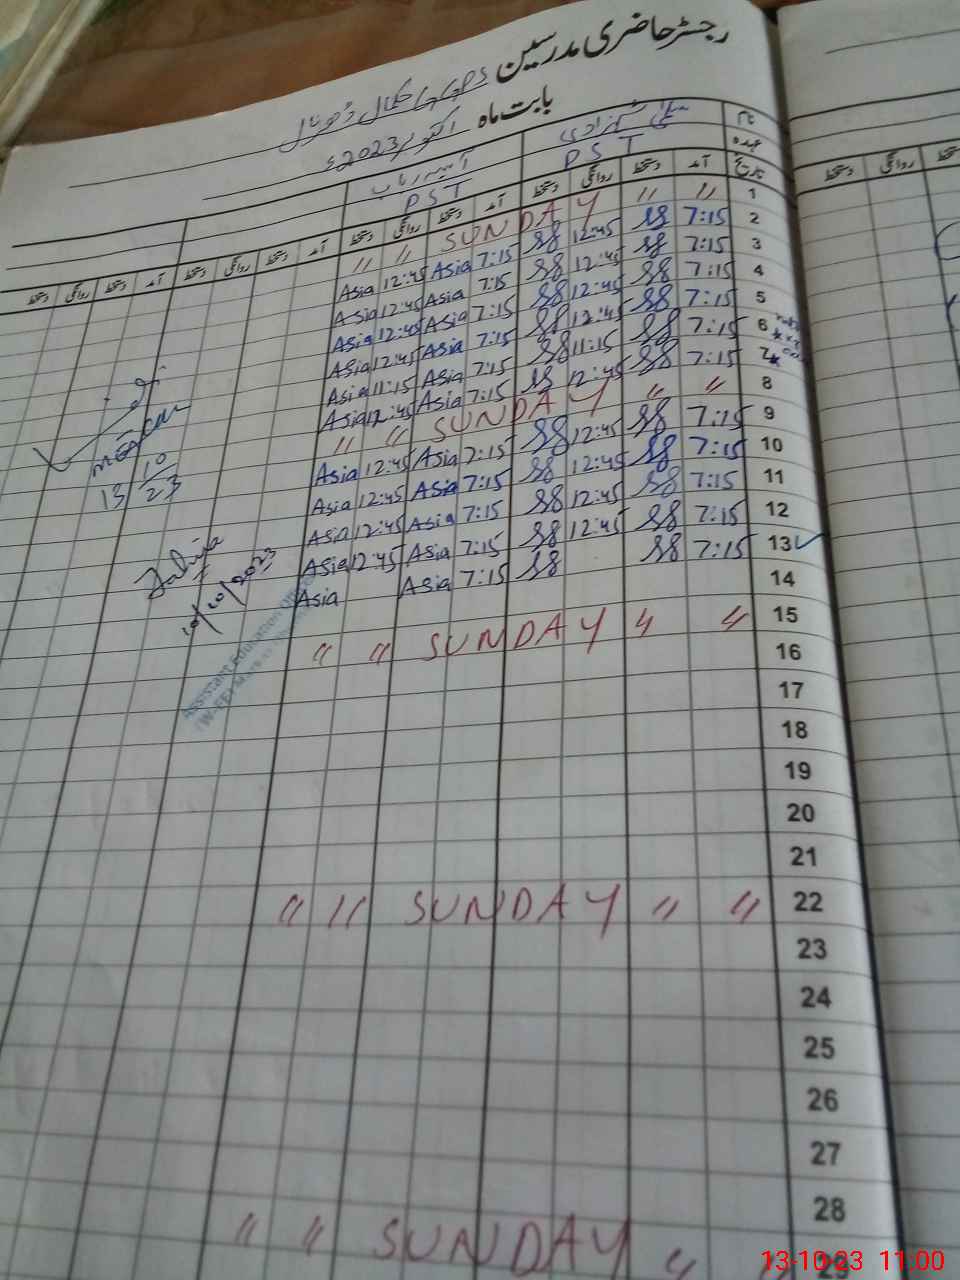 رجسٹر حاضری مدرسین GGPS کمال ڈھریال
بابت ماہ اکتوبر 2023ء
نام سلمیٰ شہزادی آسیہ رباب
عہدہ PST PST
تاریخ آمد دستخط روانگی دستخط آمد دستخط روانگی دستخط آمد دستخط روانگی دستخط آمد دستخط روانگی دستخط
1 〃 〃 SUNDAY 〃 〃
2 7:15 SS 12:45 SS 7:15 Asia 12:45 Asia
3 7:15 SS 12:45 SS 7:15 Asia 12:45 Asia
4 7:15 SS 12:45 SS 7:15 Asia 12:45 Asia
5 7:15 SS 12:45 SS 7:15 Asia 12:45 Asia
6 7:15 SS 11:15 SS 7:15 Asia 11:15 Asia
7 7:15 SS 12:45 SS 7:15 Asia 12:45 Asia
8 〃 〃 SUNDAY 〃 〃
9 7:15 SS 12:45 SS 7:15 Asia 12:45 Asia
10 7:15 SS 12:45 SS 7:15 Asia 12:45 Asia
11 7:15 SS 12:45 SS 7:15 Asia 12:45 Asia
12 7:15 SS 12:45 SS 7:15 Asia 12:45 Asia
13 7:15 SS SS 7:15 Asia Asia
14
15 〃 〃 SUNDAY 〃 〃
16
17
18
19
20
21
22 〃 〃 SUNDAY 〃 〃
23
24
25
26
27
28
29 〃 SUNDAY 〃 〃
MEA
13 10/23
10/10/2023
Assistant Education
13-10-23 11:00